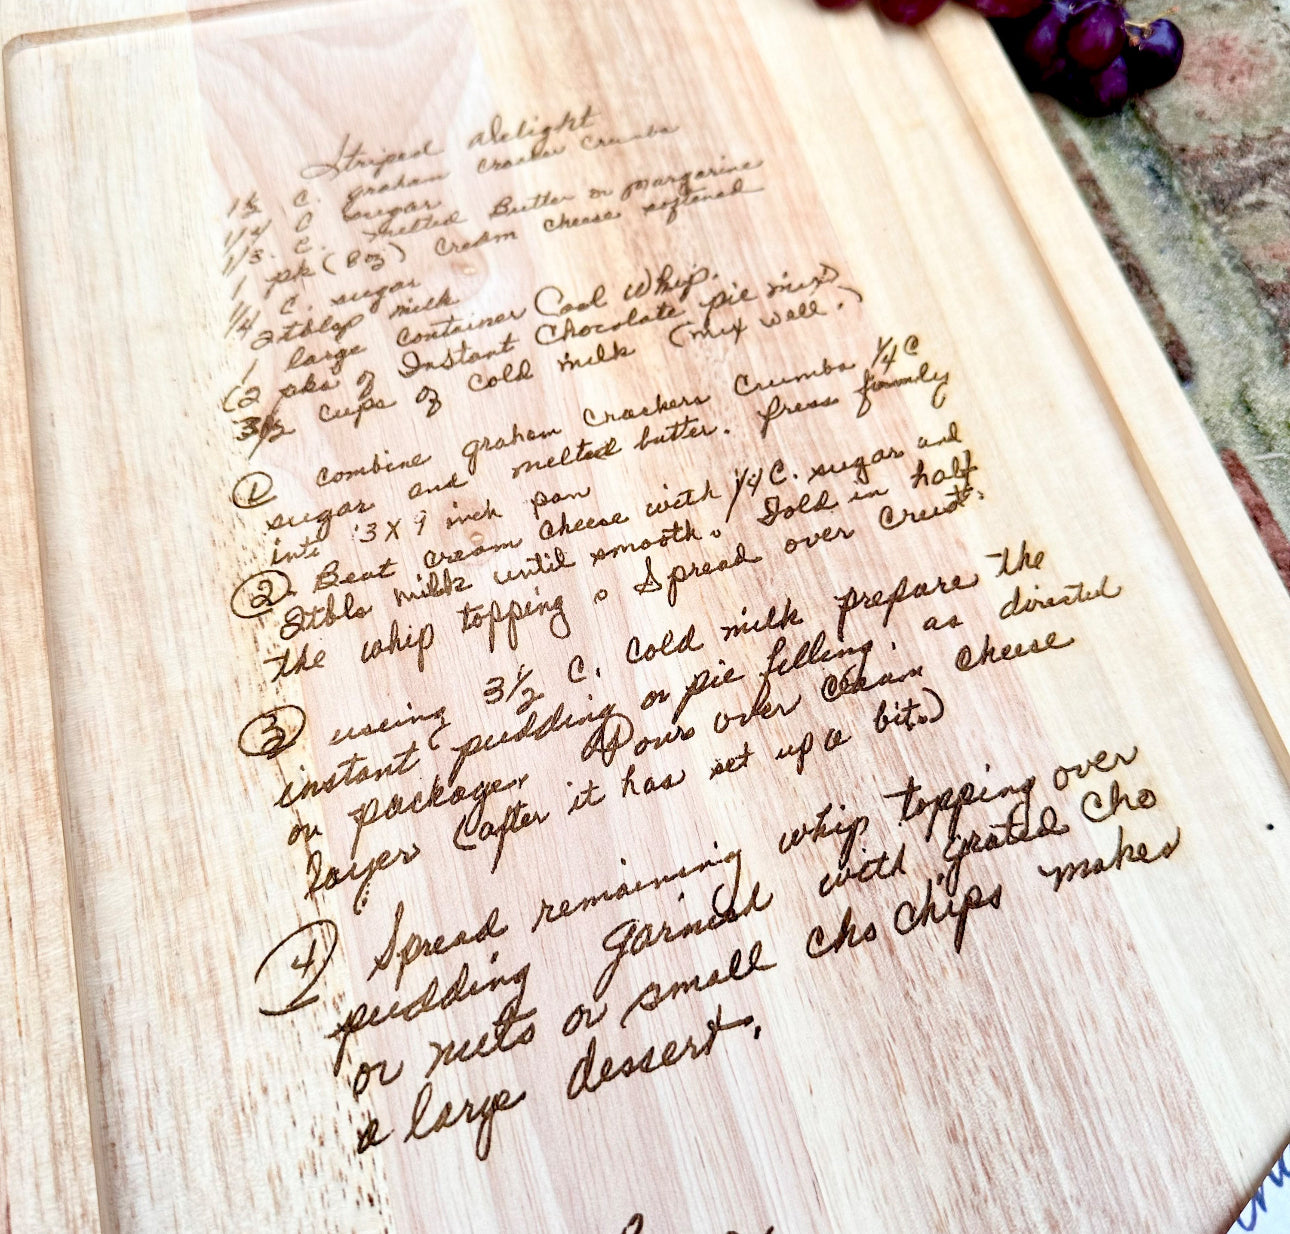 Striped Delight
1½ C. graham cracker crumbs
1/4 C sugar
1/3 C. melted Butter or Margarine
1 pk (8oz) cream cheese softened
1/4 C. sugar
2 tblsp milk
1 large container Cool Whip.
(2 pks of Instant Chocolate pie mix)
3½ cups of cold milk (mix well.)
① combine graham crackers crumbs 1/4 C
sugar and melted butter. Press firmly
into 13 X 9 inch pan
② Beat cream cheese with 1/4 C. sugar and
2tbls milk until smooth. Fold in half
the whip topping. Spread over crust.
③ using 3½ C. cold milk prepare the
instant pudding or pie filling, as directed
on package. Pour over cream cheese
layer (after it has set up a bit.)
④ Spread remaining whip topping over
pudding garnish with grated cho
or nuts or small cho chips makes
a large dessert.